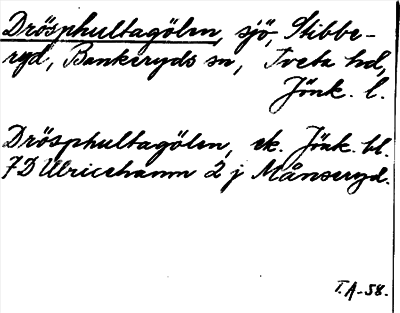 Drösphultagölen, sjö, Stibbe-
ryd, Bankeryds sn, Tveta hd,
Jönk. l.
Drösphultagölen, ek. Jönk. bl.
7D Ulricehamn 2 j Månseryd.
T.A-58.